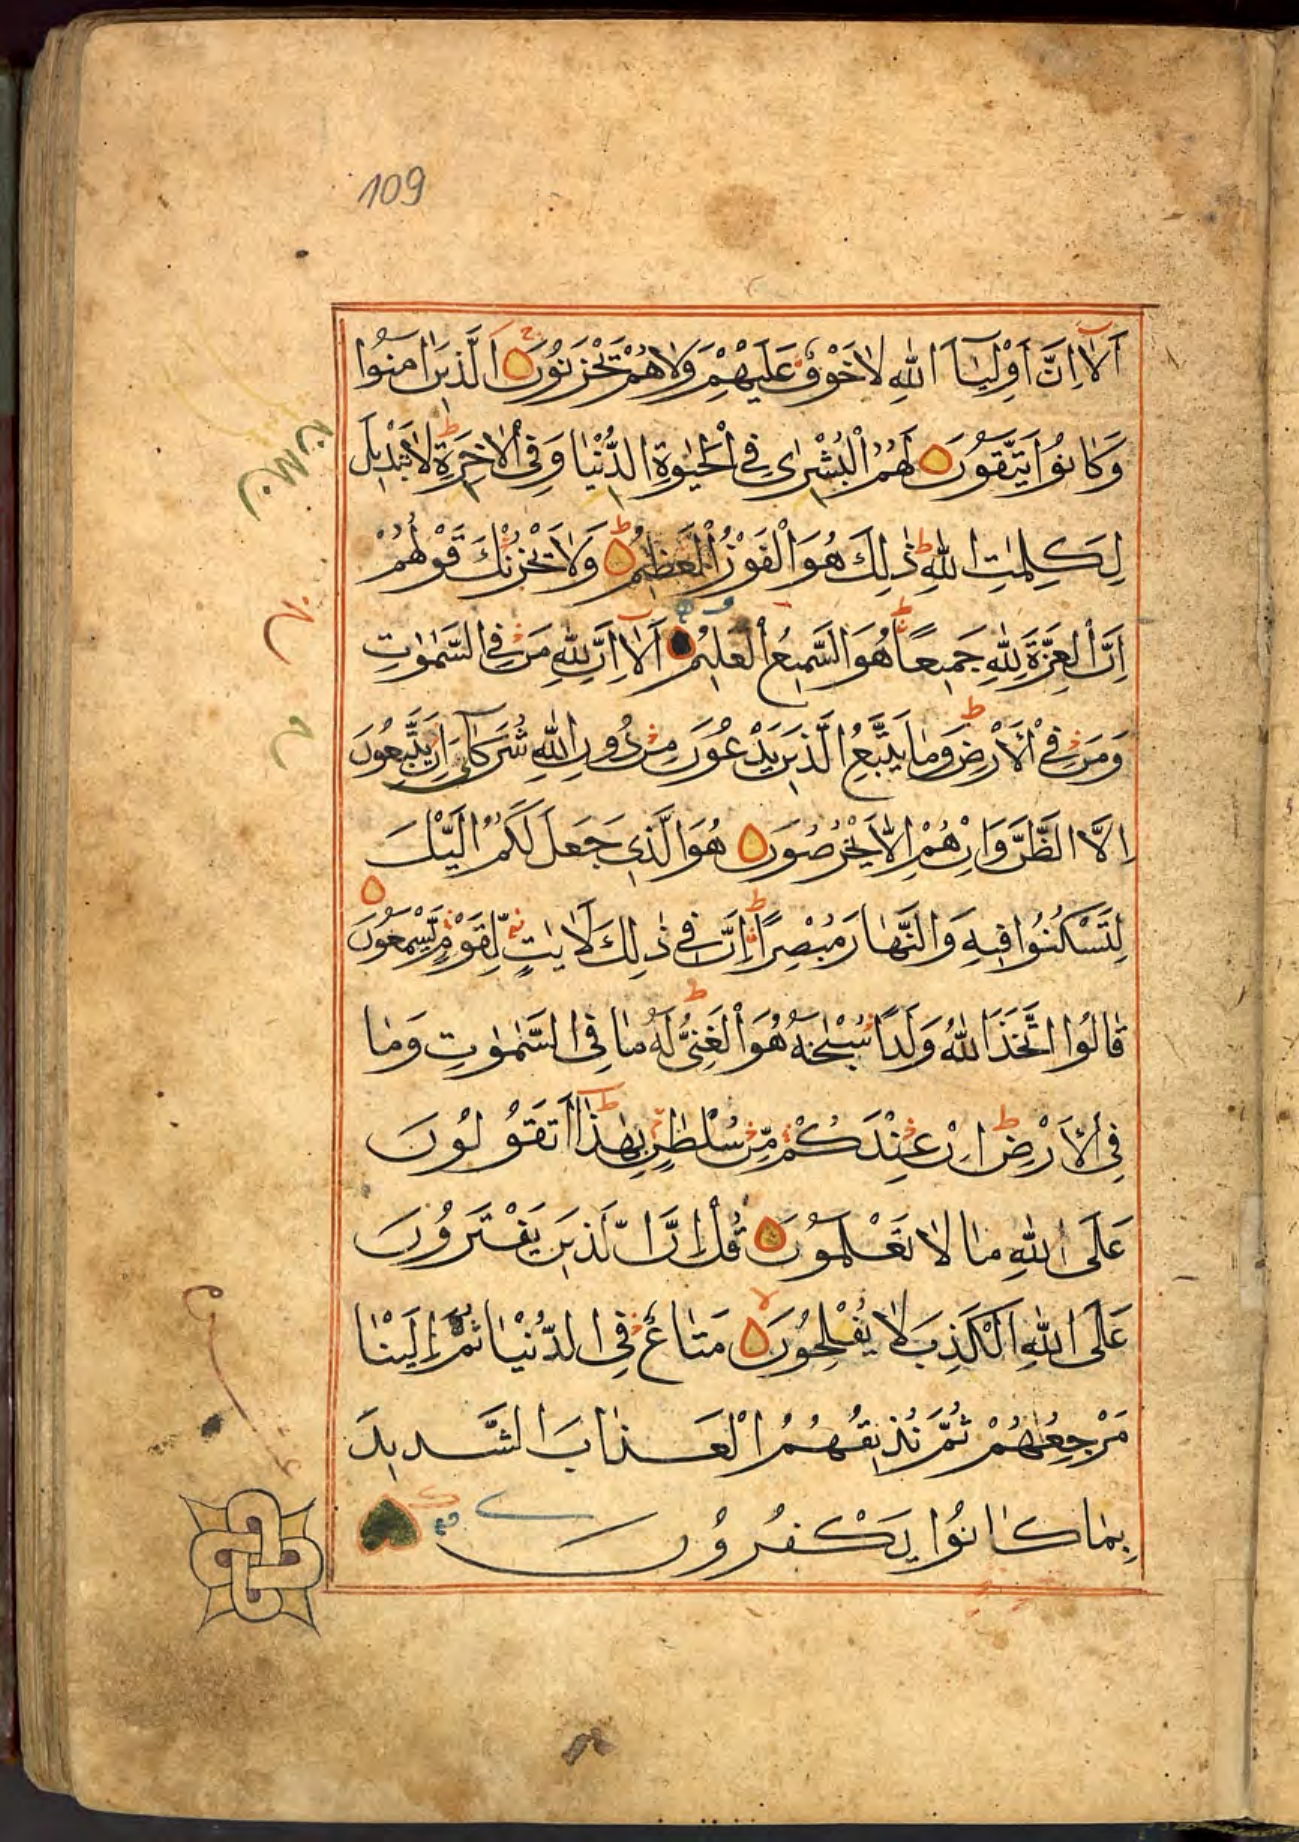 109
اَلَا اِنَّ اَوْلِيَاَ اللهِ لَا خَوْفٌ عَلَيْهِمْ وَلَا هُمْ يَحْزَنُونَ الَّذِينَ اٰمَنُوا
وَكَانُوا يَتَّقُونَ لَهُمُ الْبُشْرٰى فِي الْحَيٰوةِ الدُّنْيَا وَفِي الْاٰخِرَةِ لَا تَبْدِيلَ
لِكَلِمٰتِ اللهِ ذٰلِكَ هُوَ الْفَوْزُ الْعَظِيمُ وَلَا يَحْزُنْكَ قَوْلُهُمْ
اِنَّ الْعِزَّةَ لِلهِ جَمِيعًا هُوَ السَّمِيعُ الْعَلِيمُ اَلَا اِنَّ لِلهِ مَنْ فِي السَّمٰوٰتِ
وَمَنْ فِي الْاَرْضِ وَمَا يَتَّبِعُ الَّذِينَ يَدْعُونَ مِنْ دُونِ اللهِ شُرَكَاءَ اِنْ يَتَّبِعُونَ
اِلَّا الظَّنَّ وَاِنْ هُمْ اِلَّا يَخْرُصُونَ هُوَ الَّذِي جَعَلَ لَكُمُ الَّيْلَ
لِتَسْكُنُوا فِيهِ وَالنَّهَارَ مُبْصِرًا اِنَّ فِي ذٰلِكَ لَاٰيٰتٍ لِقَوْمٍ يَسْمَعُونَ
قَالُوا اتَّخَذَ اللهُ وَلَدًا سُبْحٰنَهُ هُوَ الْغَنِيُّ لَهُ مَا فِي السَّمٰوٰتِ وَمَا
فِي الْاَرْضِ اِنْ عِنْدَكُمْ مِنْ سُلْطٰنٍ بِهٰذَا اَتَقُولُونَ
عَلَى اللهِ مَا لَا تَعْلَمُونَ قُلْ اِنَّ الَّذِينَ يَفْتَرُونَ
عَلَى اللهِ الْكَذِبَ لَا يُفْلِحُونَ مَتَاعٌ فِي الدُّنْيَا ثُمَّ اِلَيْنَا
مَرْجِعُهُمْ ثُمَّ نُذِيقُهُمُ الْعَذَابَ الشَّدِيدَ
بِمَا كَانُوا يَكْفُرُونَ